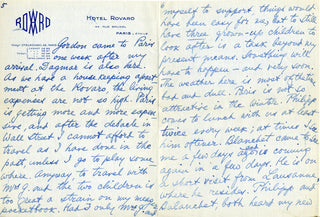 5
ROVARO
HOTEL ROVARO
44 RUE BRUNEL
PARIS
Gordon came to Paris
one week after my
arrival. Dagmar is also here.
As we have a housekeeping apart-
ment at the Rovaro, the living
expenses are not so high. Paris
is getting more and more expen-
sive and after the debacle in
Wall Street I cannot afford to
travel as I have done in the
past, unless I go to play some
where. Anyway to travel with
Mrs G. and the two children is
too great a strain on my
pocketbook. Had I only Mrs G. and
6
myself to support things would
have been easy for me, but to still
have three grown-up children to
look after is a task beyond my
present means. Something must
have to happen and play soon.
The weather here is most of the time
bad and dull. Paris is not so
attractive in the winter. Philipp
comes to lunch with us at least
twice every week; at times he
even oftener. Blanchet came to see
me a few days ago is coming
again in a few days. He is on
a short visit from Lausanne,
where he resides. Philipp and
Blanchet both heard my new